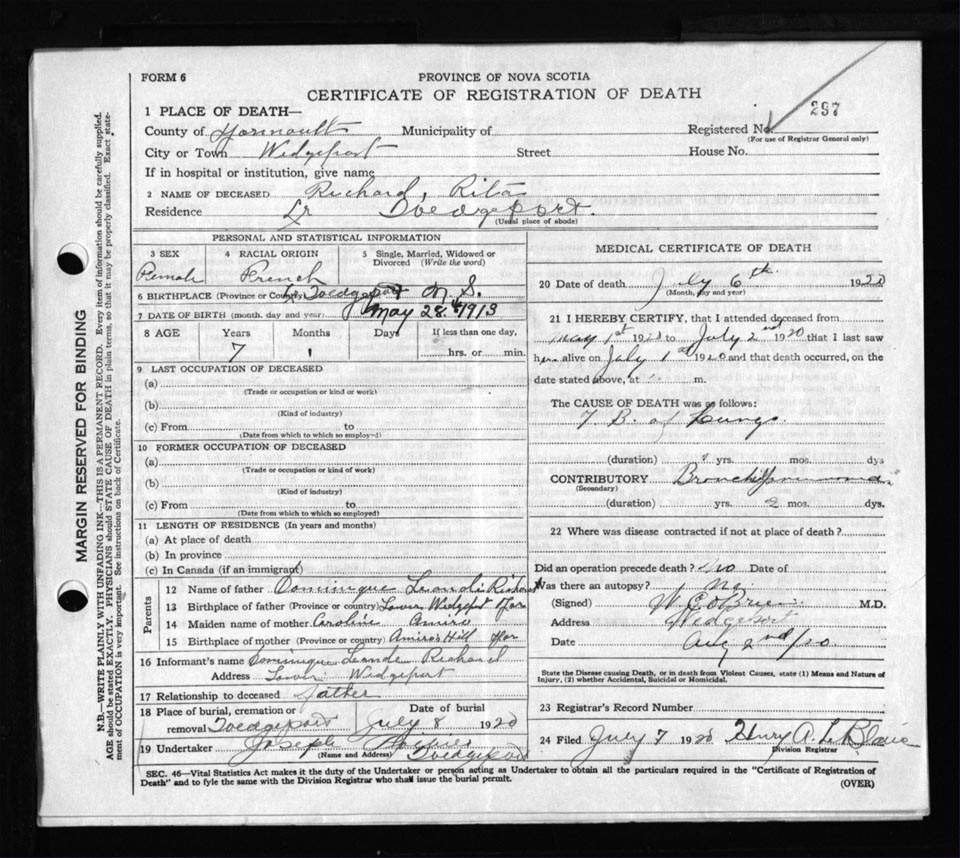 FORM 6
PROVINCE OF NOVA SCOTIA
CERTIFICATE OF REGISTRATION OF DEATH
297
1 PLACE OF DEATH—
County of Yarmouth Municipality of Registered No.
(For use of Registrar General only)
City or Town Wedgeport Street House No.
If in hospital or institution, give name
2 NAME OF DECEASED Richard, Rita
Residence Lr Wedgeport.
(Usual place of abode)
PERSONAL AND STATISTICAL INFORMATION
3 SEX 4 RACIAL ORIGIN 5 Single, Married, Widowed or Divorced (Write the word)
Female French
6 BIRTHPLACE (Province or County) Lr Wedgeport N. S.
7 DATE OF BIRTH (month, day and year) May 28th 1913
8 AGE Years Months Days If less than one day,
7 1 hrs. or min.
9 LAST OCCUPATION OF DECEASED
(a)
(Trade or occupation or kind of work)
(b)
(Kind of industry)
(c) From to
(Date from which to which so employed)
10 FORMER OCCUPATION OF DECEASED
(a)
(Trade or occupation or kind of work)
(b)
(Kind of industry)
(c) From to
(Date from which to which so employed)
11 LENGTH OF RESIDENCE (In years and months)
(a) At place of death
(b) In province
(c) In Canada (if an immigrant)
Parents
12 Name of father Dominique Leander Richard
13 Birthplace of father (Province or country) Lower Wedgeport Yar
14 Maiden name of mother Caroline Amiro
15 Birthplace of mother (Province or country) Amiro's Hill Yar
16 Informant's name Dominique Leander Richard
Address Lower Wedgeport
17 Relationship to deceased father
18 Place of burial, cremation or Date of burial
removal Wedgeport July 8 1920
19 Undertaker Joseph
(Name and Address) Wedgeport
MEDICAL CERTIFICATE OF DEATH
20 Date of death July 6th 1920
(Month, day and year)
21 I HEREBY CERTIFY, that I attended deceased from
May 1st 1920 to July 2nd 1920 that I last saw
her alive on July 1st 1920 and that death occurred, on the
date stated above, at m.
The CAUSE OF DEATH was as follows:
T. B. of Lungs
(duration) yrs. mos. dys
CONTRIBUTORY Broncho pneumonia
(Secondary)
(duration) yrs. 2 mos. dys.
22 Where was disease contracted if not at place of death?
Did an operation precede death? No Date of
Was there an autopsy? No
(Signed) W. C. O'Brien M.D.
Address Wedgeport
Date Aug 2nd/20
State the Disease causing Death, or in death from Violent Causes, state (1) Means and Nature of
Injury, (2) whether Accidental, Suicidal or Homicidal.
23 Registrar's Record Number
24 Filed July 7 1920 Henry A. LeBlanc
Division Registrar
SEC. 46—Vital Statistics Act makes it the duty of the Undertaker or person acting as Undertaker to obtain all the particulars required in the "Certificate of Registration of
Death" and to fyle the same with the Division Registrar who shall issue the burial permit.
(OVER)
MARGIN RESERVED FOR BINDING
N.B.—WRITE PLAINLY WITH UNFADING INK—THIS IS A PERMANENT RECORD. Every item of information should be carefully supplied.
AGE should be stated EXACTLY. PHYSICIANS should STATE CAUSE OF DEATH in plain terms, so that it may be properly classified. Exact state-
ment of OCCUPATION is very important. See instructions on back of Certificate.